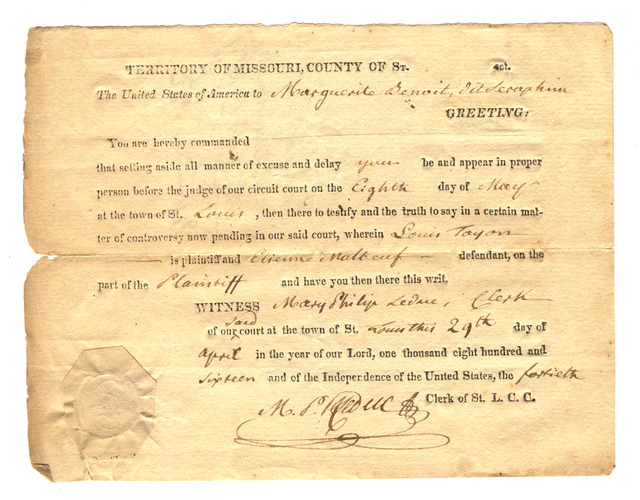 TERRITORY OF MISSOURI, COUNTY OF ST. sct.
The United States of America to Marguerite Benoit, dit Seraphim
GREETING:
You are hereby commanded
that setting aside all manner of excuse and delay you be and appear in proper
person before the judge of our circuit court on the Eighth day of May
at the town of St. Louis, then there to testify and the truth to say in a certain mat-
ter of controversy now pending in our said court, wherein Louis Tayon
is plaintiff and Etienne Malboeuf defendant, on the
part of the Plaintiff and have you then there this writ.
WITNESS Mary Philip Leduc, Clerk
of our said court at the town of St. Louis this 29th day of
April in the year of our Lord, one thousand eight hundred and
sixteen and of the Independence of the United States, the fortieth
M. P. Leduc Clerk of St. L. C. C.